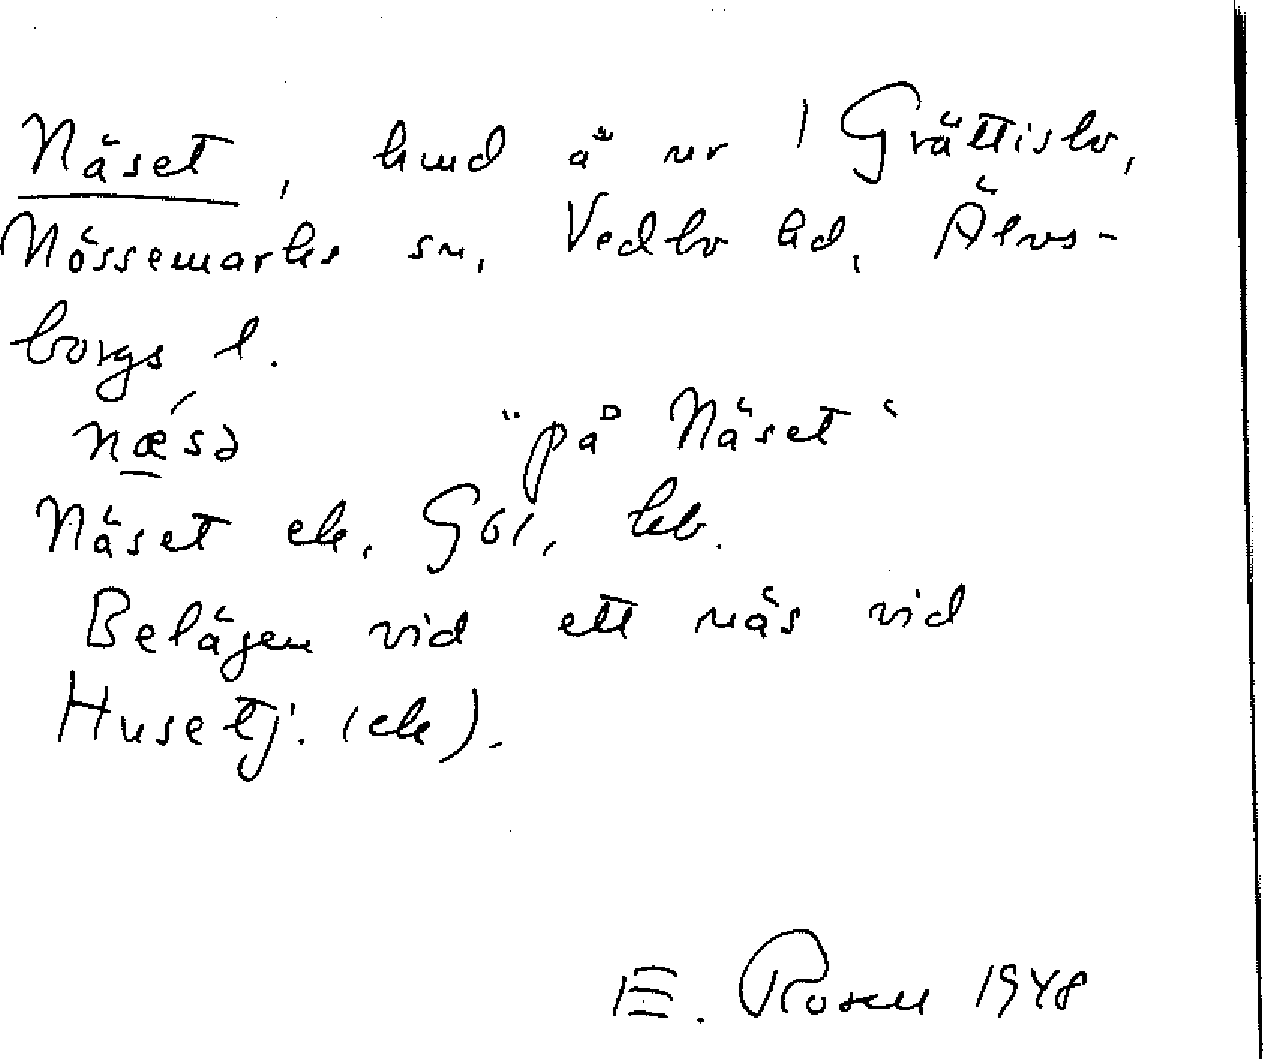 Näset, hmd å nr 1 Grättisbo,
Nössemarks sn, Vedbo hd, Älvs-
borgs l.
nǽ̲sə "på Näset"
Näset ek, GSI, kb.
Belägen vid ett näs vid
Husetj. (ek).
E. Rosell 1948